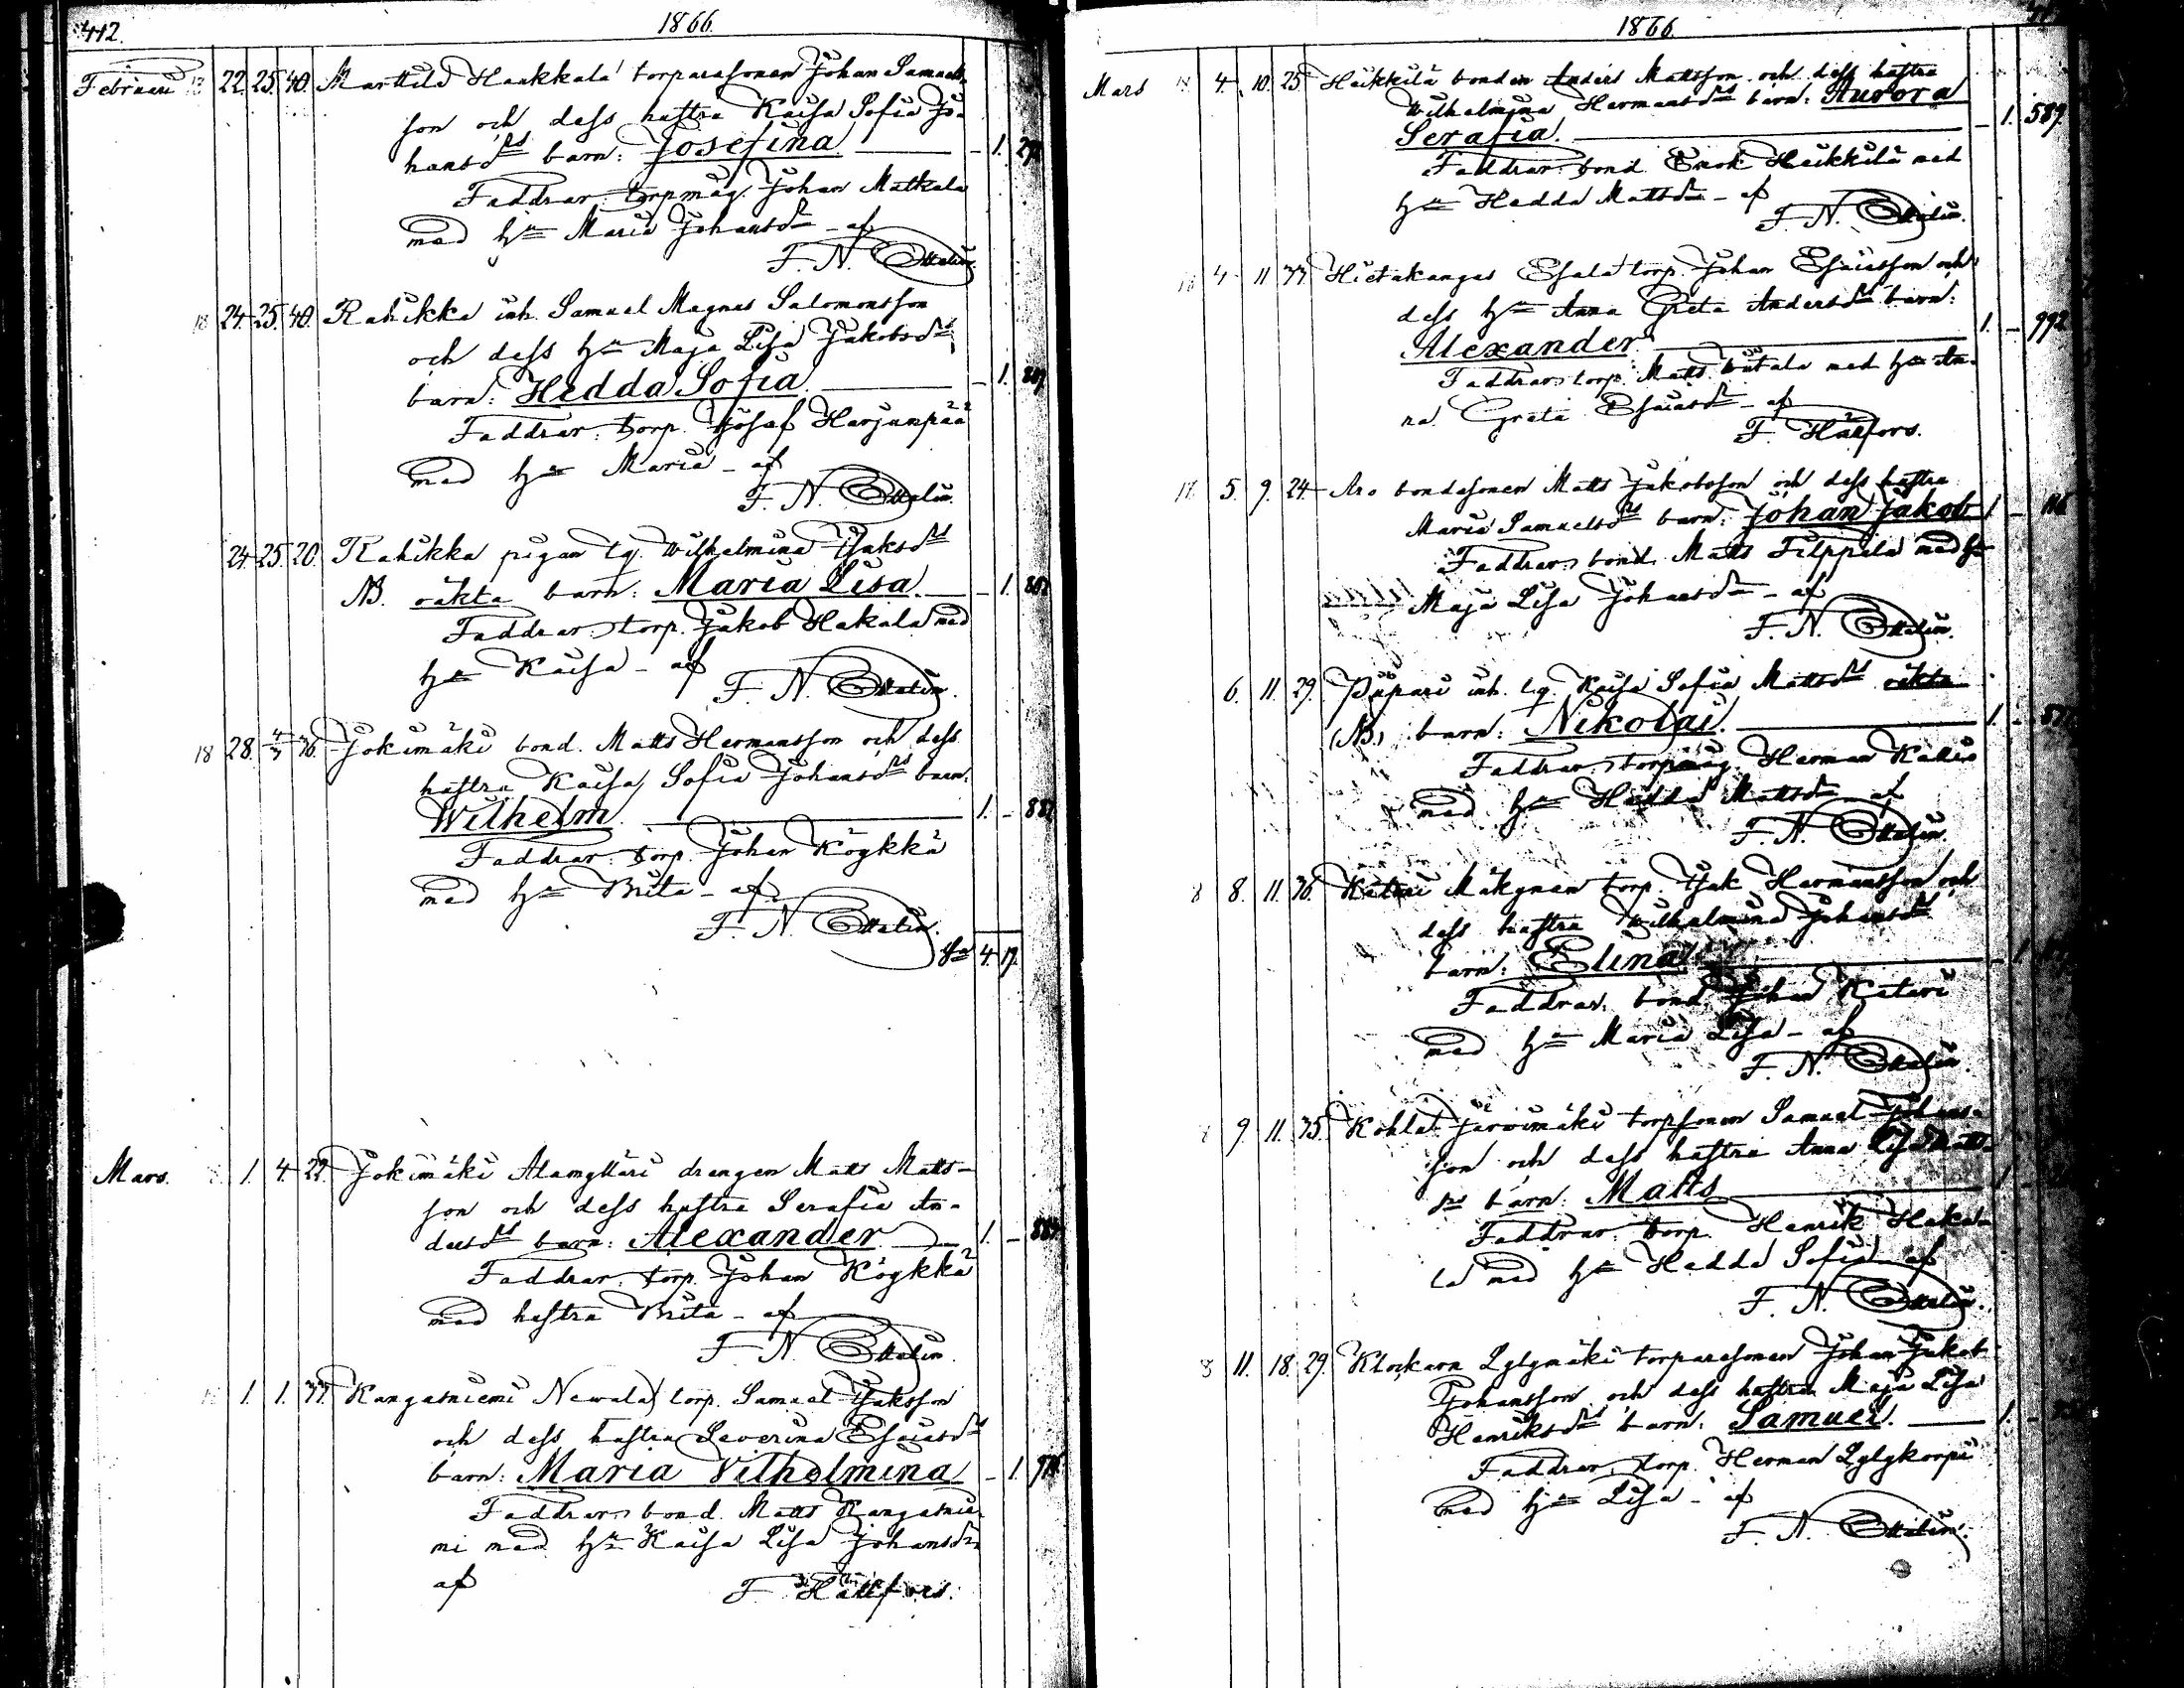 412.
1866.
Februari 22. 25. 40. Marttila Haakkala torparesonen Johan Samuels-
son och dess hustru Kaisa Sofia Jo-
hansdrs barn: Josefina. – 1.
Faddrar: torpmåg. Johan Matkala
med hn Maria Johansdr – af
F. N. Ottelin.
18 24. 25. 40. Rahikka inh. Samuel Magnus Salomonsson
och dess hu Maja Lisa Jakobsdrs
barn: Hedda Sofia. – 1.
Faddrar: torp. Josef Harjunpää
med hu Maria – af
F. N. Ottelin.
24. 25. 20. Rahikka pigan lg. Wilhelmina Isaksdrs
NB. oäkta barn: Maria Lisa. – 1.
Faddrar: torp. Jakob Hakala med
hu Kaisa – af
F. N. Ottelin.
18 28. 4/3 36. Jokimäki bond. Matts Hermansson och dess
hustru Kaisa Sofia Johansdrs barn:
Wilhelm. 1. –
Faddrar: torp. Johan Köykkä
med hu Brita – af
F. N. Ottelin.
Sa 4. 17.
Mars. 1. 4. 22. Jokimäki Alamylläri drengen Matts Matts-
son och dess hustru Serafia An-
dersdrs barn: Alexander 1. – 887.
Faddrar: torp. Johan Köykkä
med hustru Brita – af
F. N. Ottelin.
1. 1. 37. Kangasniemi Newala torp. Samuel Isaksson
och dess hustru Severina Esaiasdrs
barn: Maria Vilhelmina – 1.
Faddrar: bond. Matts Kangasnie-
mi med hu Kaisa Lisa Johansdr
af F. Hällfors.
1866.
Mars 4. 10. 25. Heikkilä bonden Anders Mattsson och dess hustru
Wilhelmina Hermansdrs barn: Aurora
Serafia. – 1. 589.
Faddrar: bond. Enok Heikkilä med
hu Hedda Mattsdr – af
F. N. Ottelin.
4. 11. 37. Hietakangas Esala torp. Johan Esaiasson och
dess hu Anna Greta Andersdrs barn:
Alexander 1. – 992.
Faddrar: torp. Matts med hu An-
na Greta Esaiasdr – af
F. Hällfors.
17. 5. 9. 24. Aro bondesonen Matts Jakobsson och dess hustru
Maria Samuelsdrs barn: Johan Jakob 1. –
Faddrar: bond. Matts Filppula med hu
Maja Lisa Johansdr – af
F. N. Ottelin.
6. 11. 29. Piipari inh. lg. Kaisa Sofia Mattsdrs oäkta
(NB.) barn: Nikolai. 1. –
Faddrar: torpmåg. Herman Kallio
med hu Hedda Mattsdr – af
F. N. Ottelin.
8 8. 11. 36. Kitari Mäkynen torp. Isak Hermansson och
dess hustru Wilhelmina Johansdrs
barn: Elina – 1.
Faddrar: bond. Johan Kitari
med hu Maria Lisa – af
F. N. Ottelin.
9. 11. 35. Kohla Järwimäki torpsonen Samuel Johans-
son och dess hustru Anna Lisa Matts-
drs barn: Matts
Faddrar: torp. Henrik Haka-
la med hu Hedda Sofia – af
F. N. Ottelin.
8 11. 18. 29. Klockarn Lylymäki torparesonen Johan Jakob
Johansson och dess hustru Maja Lisa
Henriksdrs barn: Samuel. 1. –
Faddrar: torp. Herman Lylykorpi
med hu Lisa – af
F. N. Ottelin.